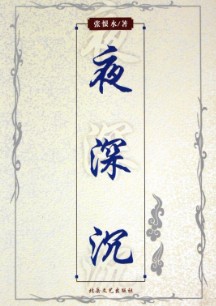 张恨水/著
夜深沉
北岳文艺出版社